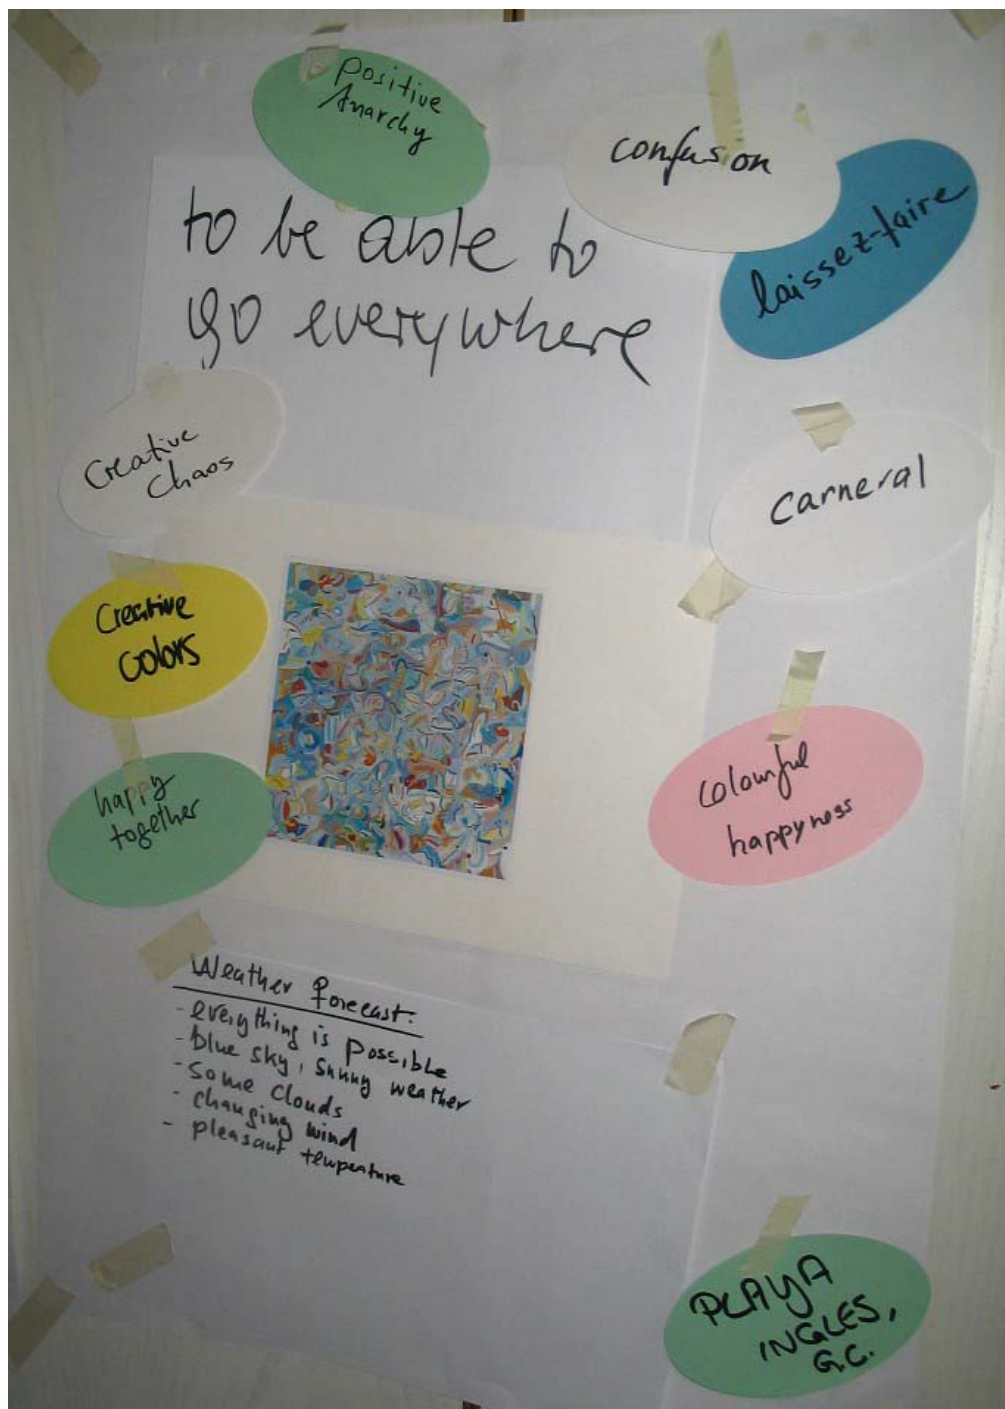 Positive
Anarchy
confusion
laissez-faire
to be able to
go everywhere
Creative
Chaos
carneval
Creative
Colors
happy
together
Colourful
happyness
Weather Forecast:
- everything is possible
- blue sky, sunny weather
- some clouds
- changing wind
- pleasant temperature
PLAYA
INGLES,
G.C.